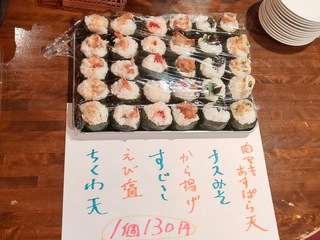 肉巻きあすぱら天
ナスみそ
から揚げ
すじこ
えび塩
ちくわ天
1個130円